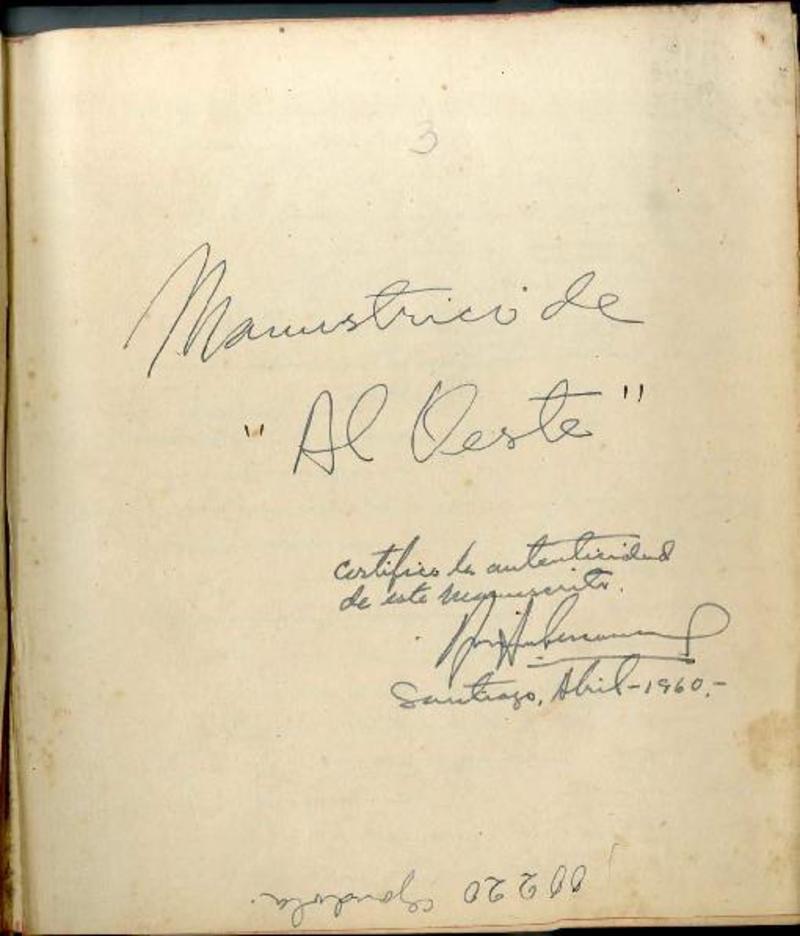 3
Manustrico de
"Al Oeste"
Certifico la autenticidad
de este manuscrito.
Santiago, Abril-1960.-
00220